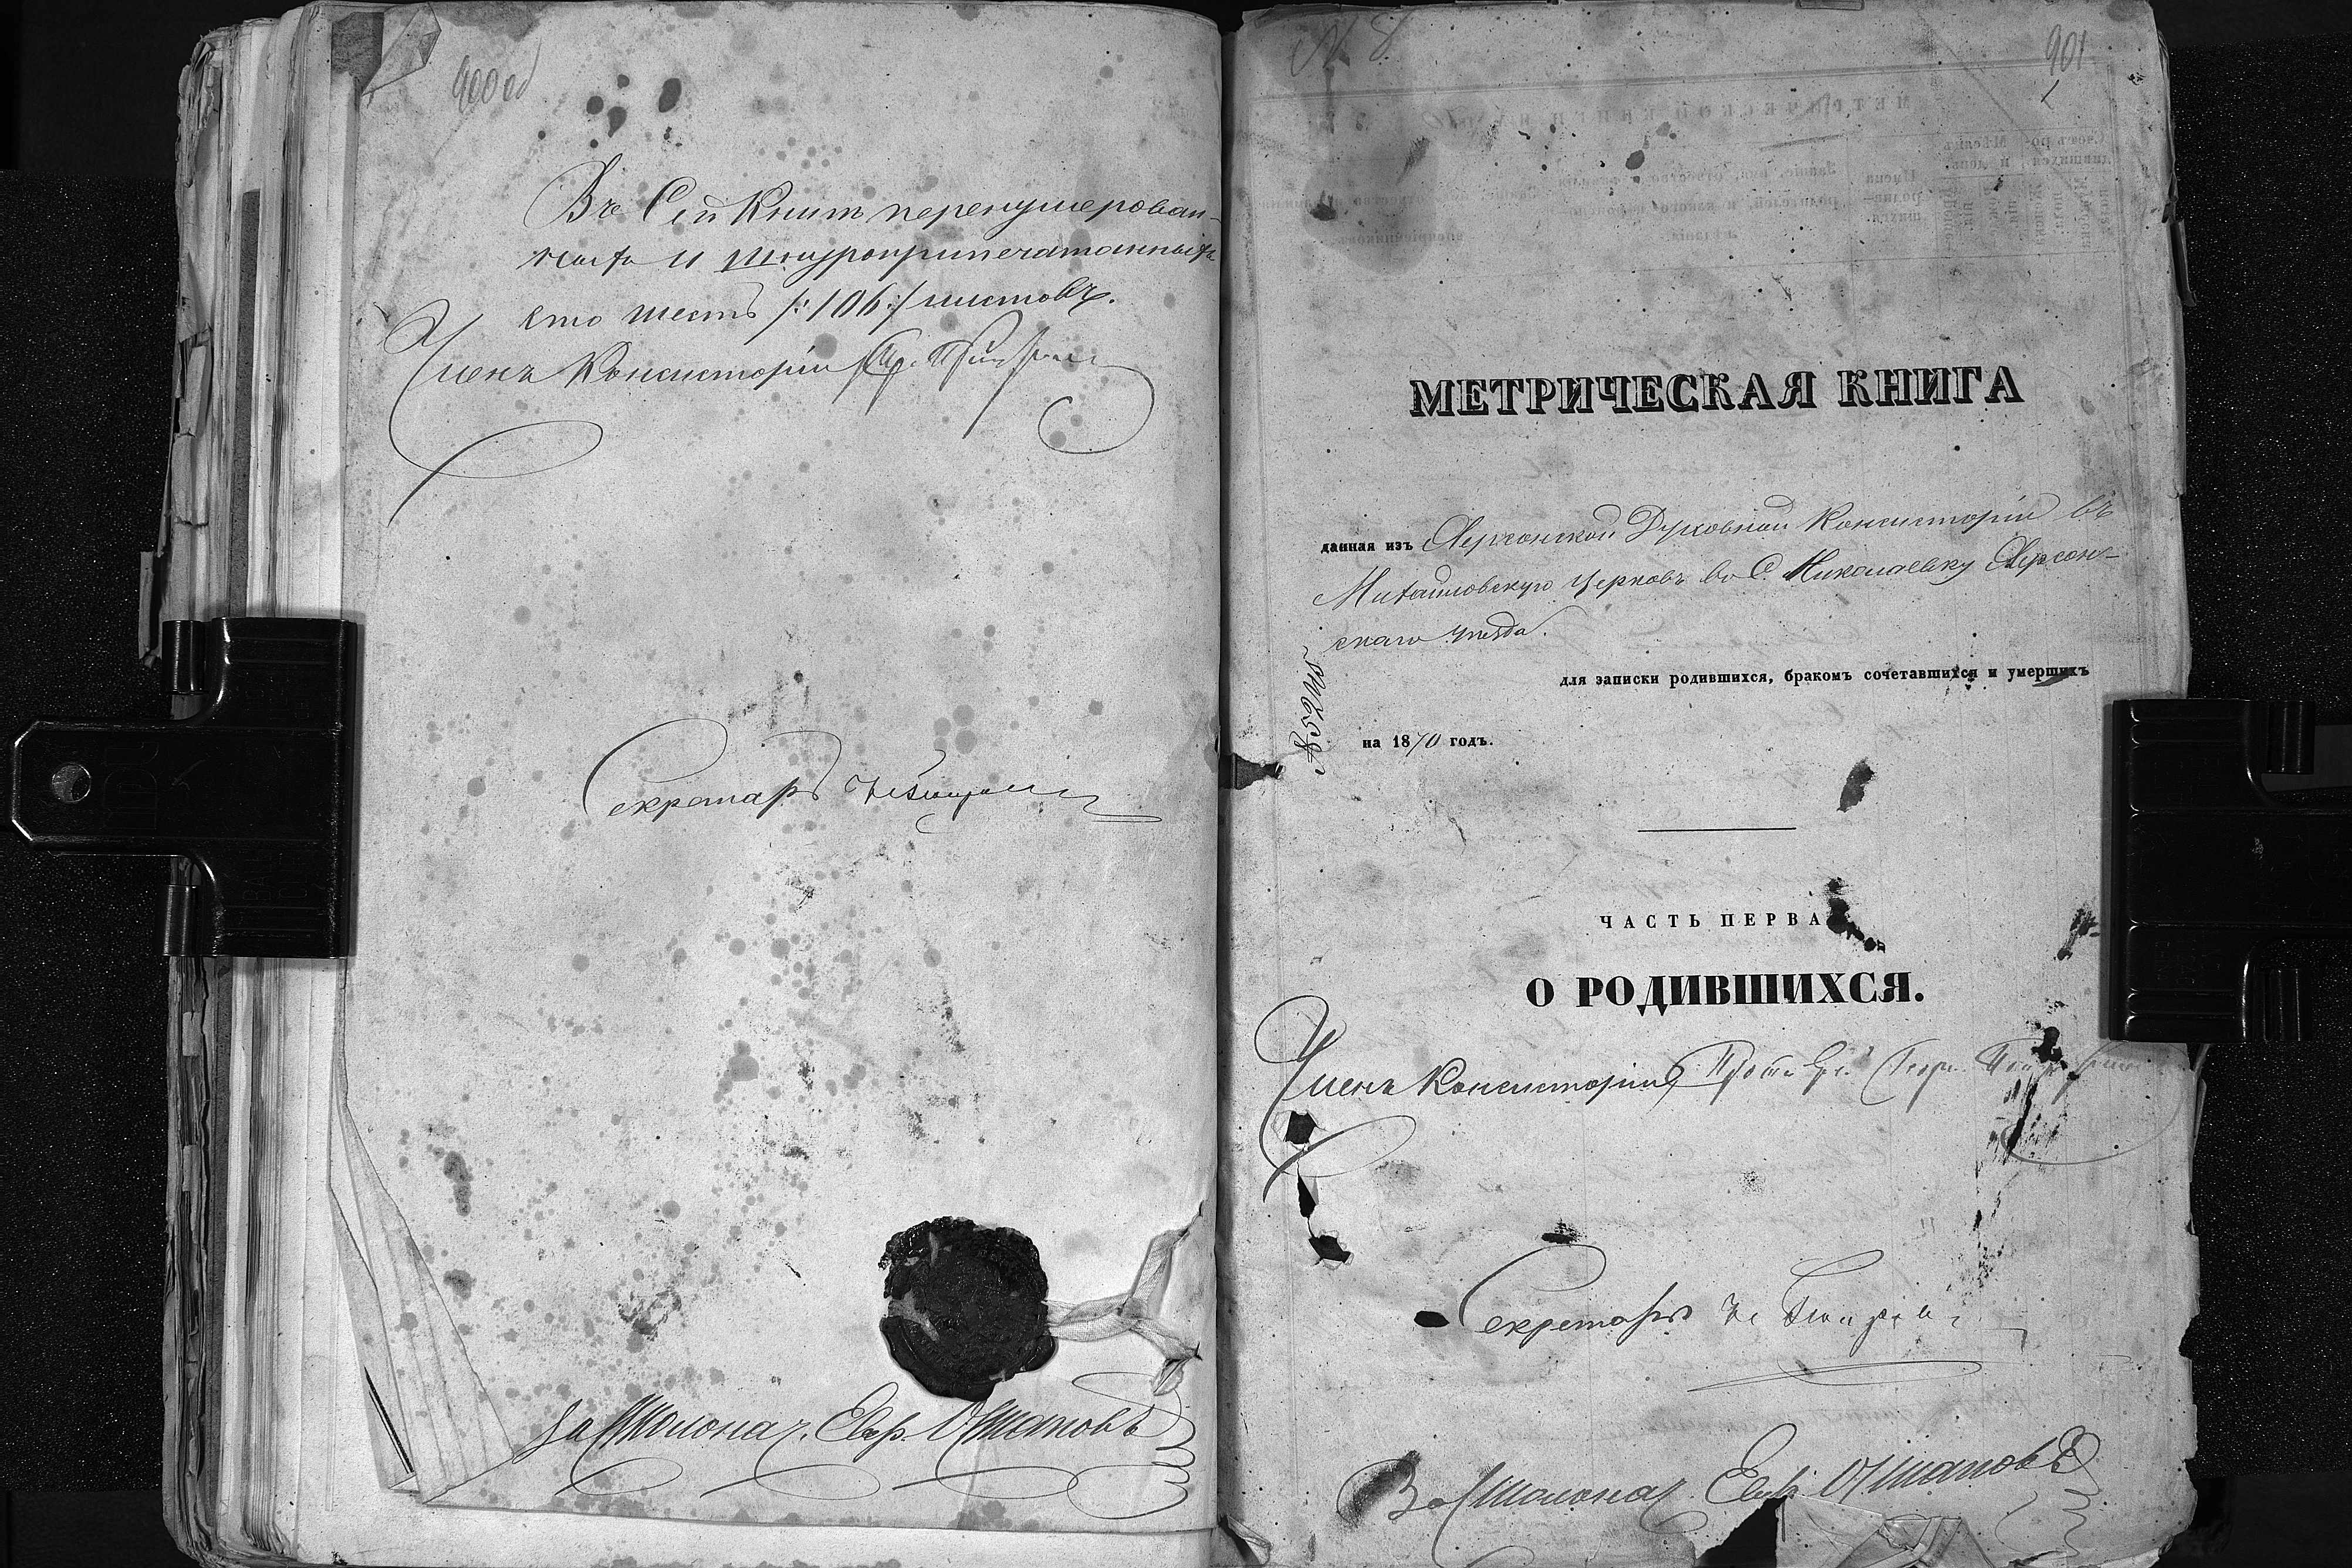 900 об
Въ Сей Книгѣ перенумерован-
ныхъ и шнуроприпечатанныхъ
сто шесть /:106:/ листовъ.
Членъ Консисторіи
Секретарь
За Столонач. Евф. Ошаповъ
№ 8.
901
МЕТРИЧЕСКАЯ КНИГА
данная изъ Херсонской Духовной Консисторіи въ
Михайловскую церковь во С. Николаевку Херсон-
скаго уѣзда.
для записки родившихся, бракомъ сочетавшихся и умершихъ
на 1870 годъ.
ЧАСТЬ ПЕРВА
О РОДИВШИХСЯ.
Членъ Консисторіи, Протоіерей
Секретарь
За Столонач. Евф. Ошаповъ